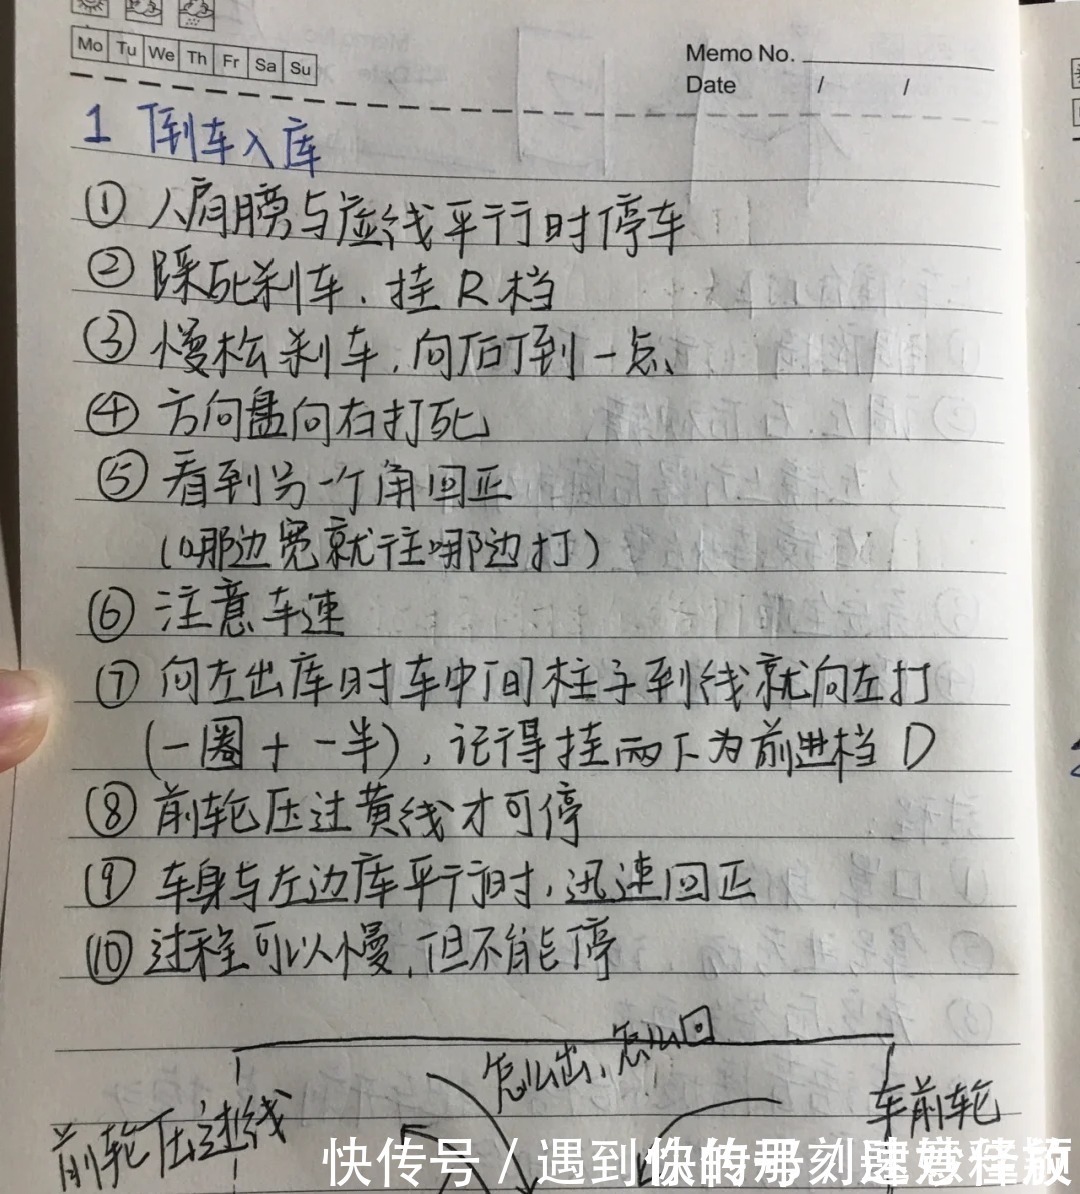 Mo Tu We Th Fr Sa Su
Memo No.
Date / /
1 倒车入库
① 人肩膀与虚线平行时停车
② 踩死刹车,挂R档
③ 慢松刹车,向后倒一点
④ 方向盘向右打死
⑤ 看到另一个角回正
(哪边宽就往哪边打)
⑥ 注意车速
⑦ 向左出库时车中间柱子到线就向左打
(一圈+一半),记得挂两下为前进档D
⑧ 前轮压过黄线才可停
⑨ 车身与左边库平行时,迅速回正
⑩ 过程可以慢,但不能停
怎么出、怎么回
前轮压过线
车前轮
快传号/遇到你的那刻